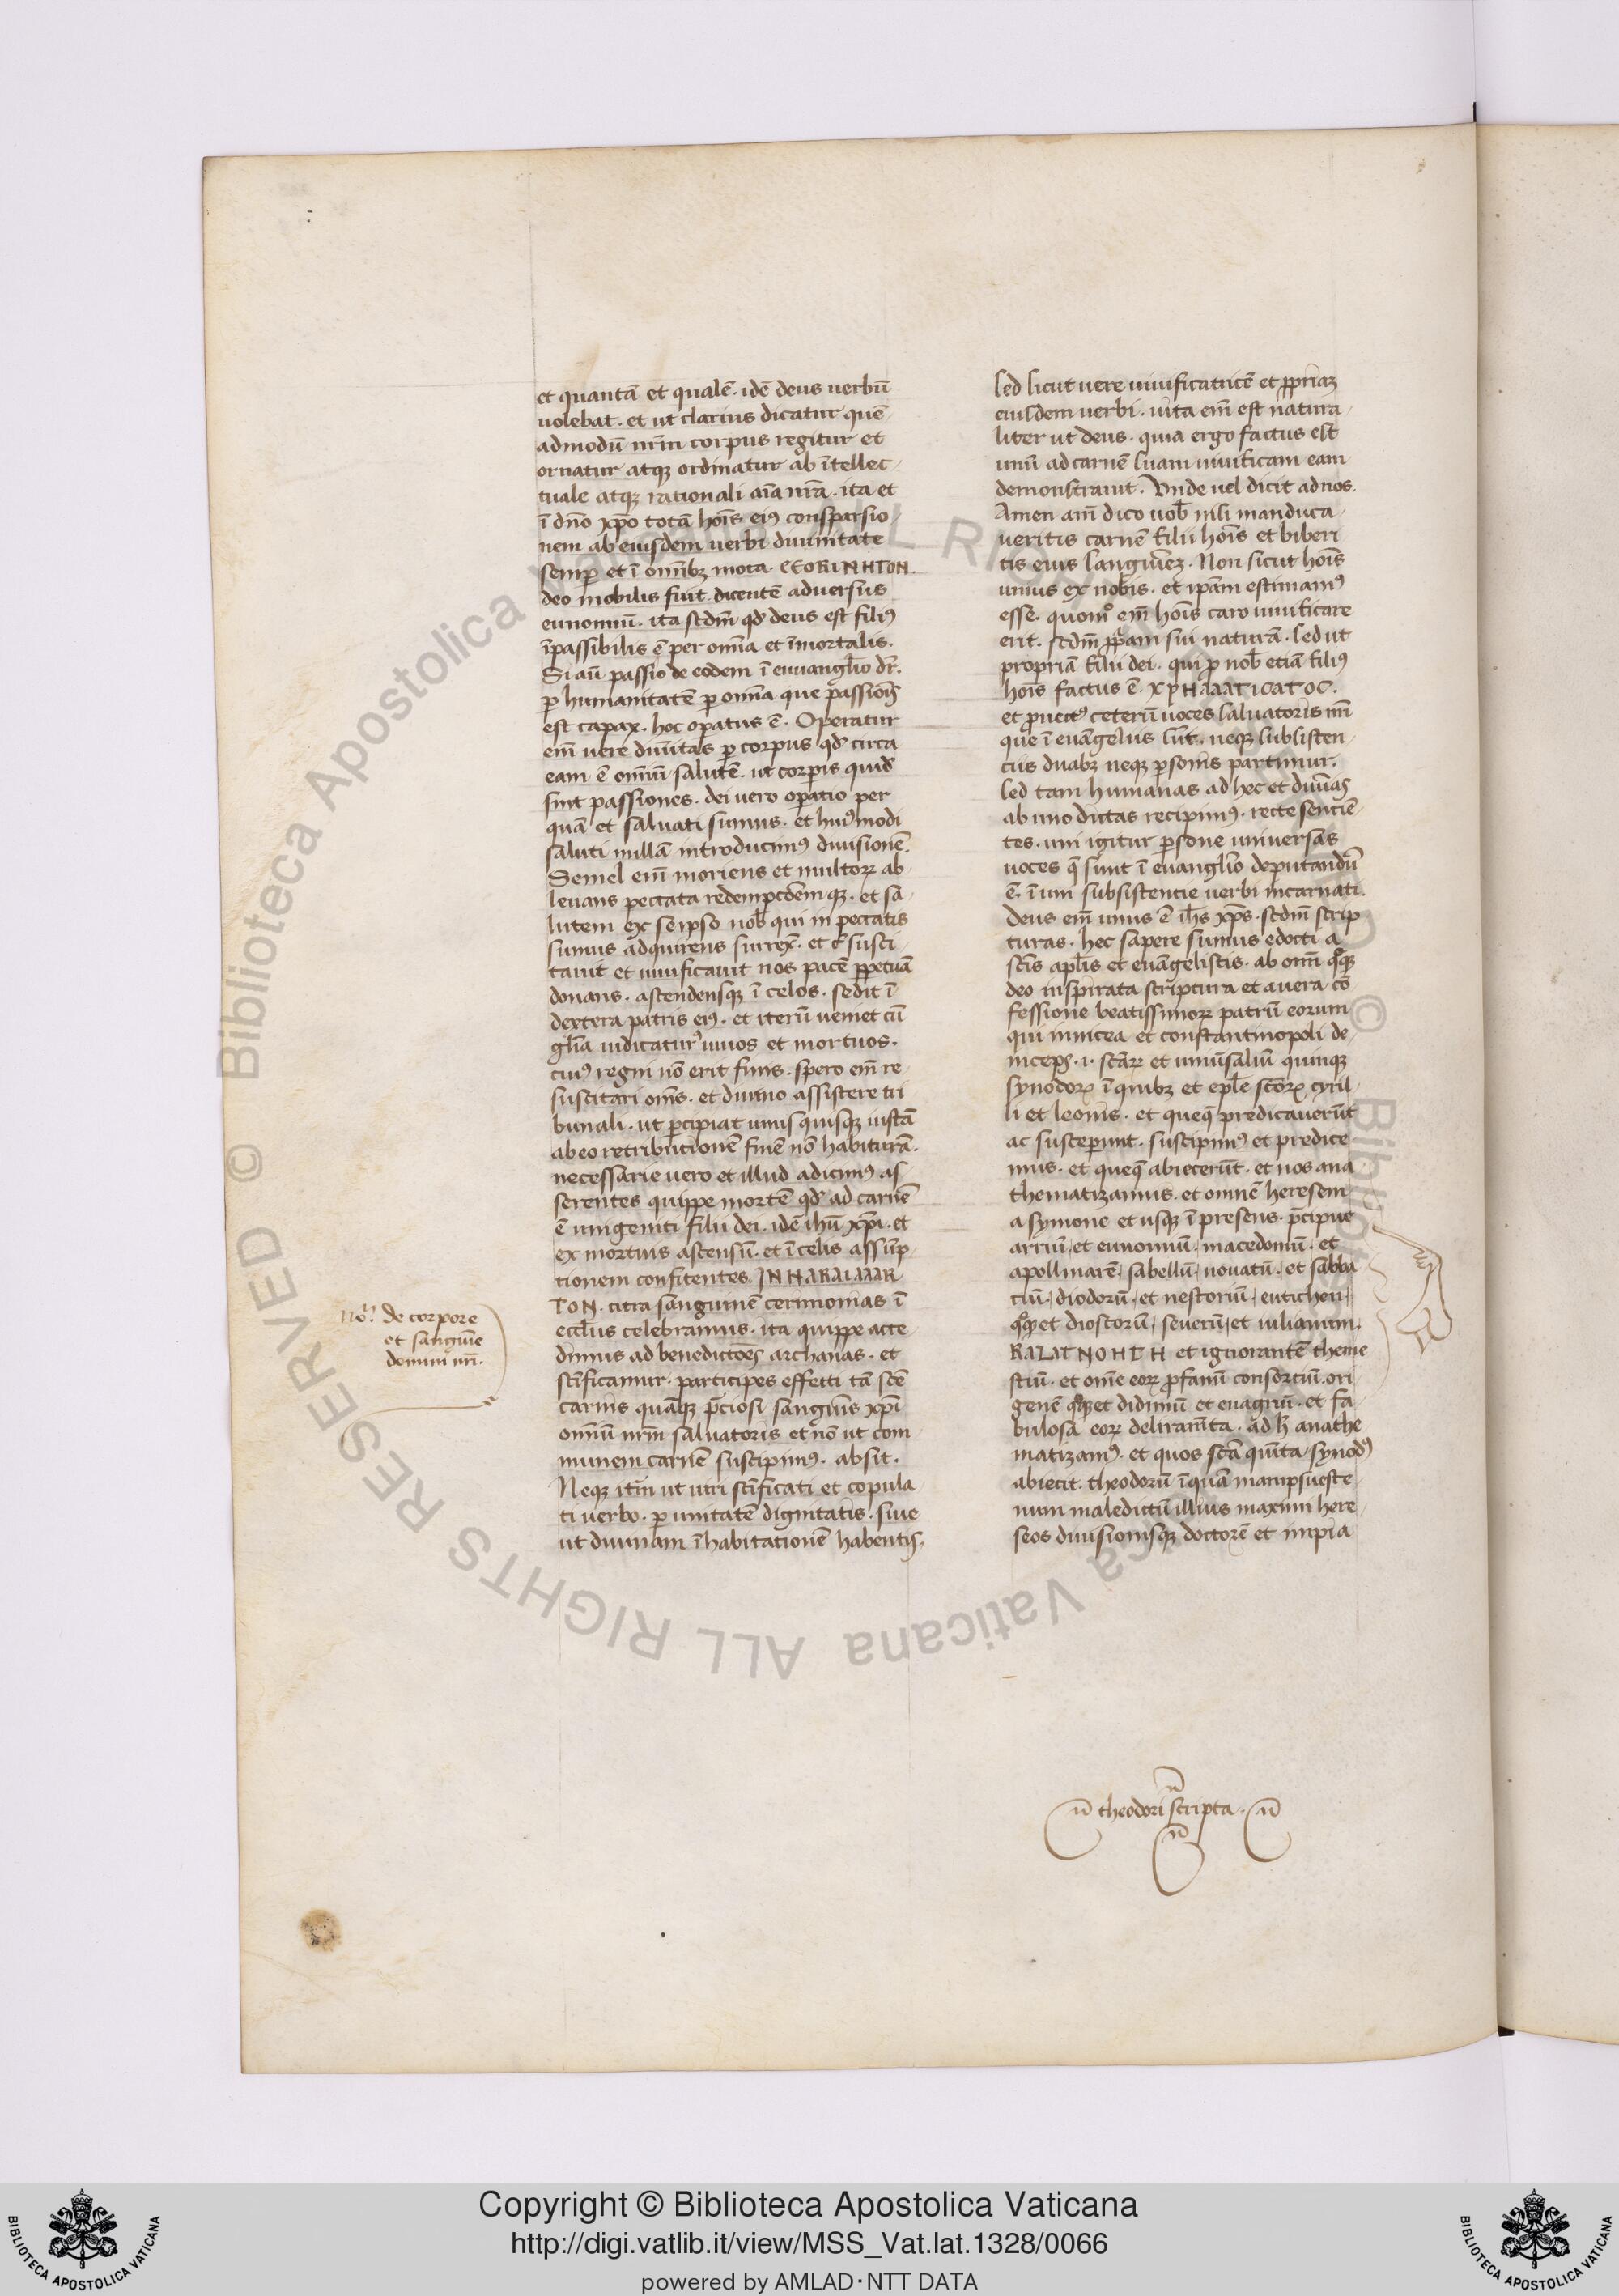 et quantā et qualē · idē deus uerbū
uolebat · et ut clarius dicatur quē
admodū nrm̄ corpus regitur et
ornatur atqꝫ ordinatur ab ītellec
tuale atqꝫ rationali aīa nrā · ita et
ī dnō xp̄o totā hoīs eiꝰ consparsio
nem ab eiusdem uerbi diuinitate
semꝑ et ī omībꝫ mota · CEOKINHTON ·
deo mobilis fuit dicentē aduersus
eunomiū · ita scdm̄ qd̄ deus est filiꝰ
īpassibilis ē per omīa et īmortalis ·
Si aū passio de eodem ī euuangl̄io dr̄ ·
ꝑ humanitatē ꝑ omīa que passionis
est capax · hoc oꝑatus ē · Operatur
em̄ uere diuītas ꝑ corpus qd̄ circa
eam ē omīū salutē · ut corꝑis quid̄
sint passiones · dei uero oꝑatio per
quā et saluati sumus · et huiꝰmodi
saluti nullā introducimꝰ diuisionē
Semel em̄ moriens et multoꝝ ab
leuans peccata redempcōem̄qꝫ · et sa
lutem ex se ipso nob̄ qui in peccatis
sumus adquirens surrex̄ · et ɔ̄susci
tauit et uiuificauit nos pacē ꝑpetuā
donans · ascendensqꝫ ī celos · sedit ī
dextera patris eiꝰ · et iterū ueniet cū
glīa iudicaturꝰ uiuos et mortuos ·
cuiꝰ regni nō erit finis · spero em̄ re
suscitari om̄s · et diuino assistere tri
bunali · ut ꝑcipiat unus quisqꝫ iustā
ab eo retributionē finē nō habiturā ·
necessarie uero et illud adicimꝰ as
serentes quippe mortē qd̄ ad carnē
ē unigeniti filii dei · idē ihū xp̄i · et
ex mortuis ascensū · et ī celis assūp
tionem confitentes INHAKAIAAAK
TON · citra sanguinē cerimonias ī
eccl̄iis celebramus · ita quippe acce
dimus ad benedictōes archanas · et
scīficamur · participes effecti tā scē
carnis quāqꝫ p̄ciosi sanguīs xp̄i
omīū nrm̄ saluatoris et nō ut com
munem carnē suscipimꝰ · absit ·
Neqꝫ itm̄ ut uiri scīficati et copula
ti uerbo · ꝑ unitatē dignitatis · siue
ut diuinam īhabitationē habentis ·
Noᵃ de corpore
et sanguīe
domini nri ·
sed sicut uere uiuificatricē et ꝓpriaꝫ
eiusdem uerbi · uita em̄ est natura
liter ut deus · quia ergo factus est
unū ad carnē suam uiuificam eam
demonstrauit · Unde uel dicit ad nos ·
Amen am̄ dico uob̄ nisi manduca
ueritis carnē filii hoīs et biberi
tis eius sanguineꝫ · Non sicut hoīs
unius ex nobis · et ip̄am estimamꝰ
esse · quomᵒ em̄ hoīs caro uiuificare
erit · scdm̄ ꝓpriam sui naturā · sed ut
propriā filii dei · qui ꝓ nob̄ etiā filiꝰ
hoīs factus ē · XPHAAATICATOC ·
et ꝓuectꝰ ceterū uoces saluatoris nri
que ī euāgeliis sūt · neqꝫ subsisten
ciis duabꝫ neqꝫ ꝑsonis partimur ·
sed tam humanas ad hec et diuīas
ab uno dictas recipimꝰ · recte sencie
tes · uni igitur ꝑsone uniuersas
uoces q̄ sunt ī euangl̄io deputandū
ē · ī uni subsistencie uerbi incarnati ·
Deus em̄ unus ē ih̄s xp̄s · scdm̄ scrip
turas · hec sapere sumus edocti a
scīs apl̄is et euāgelistis · ab om̄i q̊qꝫ
deo inspirata scriptura et a uera cō
fessione beatissimoꝝ patrū eorum
qui in nicea et constantinopoli de
inceps · ı · scāꝝ et uniūsaliū quinqꝫ
synodoꝝ ī quibꝫ et epl̄e scōꝝ cyril
li et leonis · et queqꝫ predicauerūt
ac susceperunt · suscipimꝰ et predice
mus · et queqꝫ abiecerūt · et nos ana
thematizamus · et omnē heresem
a symone et usqꝫ ī presens · p̄cipue
arriū · et eunomiū · macedoniū · et
apollinarē · sabelliū · nouatū · et sabba
ciū · diodorū · et nestoriū · eutichen
q̊ꝫ et dioscorū · seuerū · et iulianum ·
KALATNOHTH et ignorantē theme
stiū · et om̄e eoꝝ ꝓfanū consorciū · ori
genē q̊ꝫ et didimū et euagriū · et fa
bulosa eoꝝ deliramīta · ad h̄ anathe
matizamꝰ · et quos scā quīta synodꝰ
abiecit · theodorū īquā mampsueste
num maledictū illius maximi here
seos diuisionisqꝫ doctorē et impia
theodori scripta ·
© Biblioteca Apostolica Vaticana ALL RIGHTS RESERVED
Copyright © Biblioteca Apostolica Vaticana
http://digi.vatlib.it/view/MSS_Vat.lat.1328/0066
powered by AMLAD·NTT DATA
BIBLIOTECA APOSTOLICA VATICANA
BIBLIOTECA APOSTOLICA VATICANA